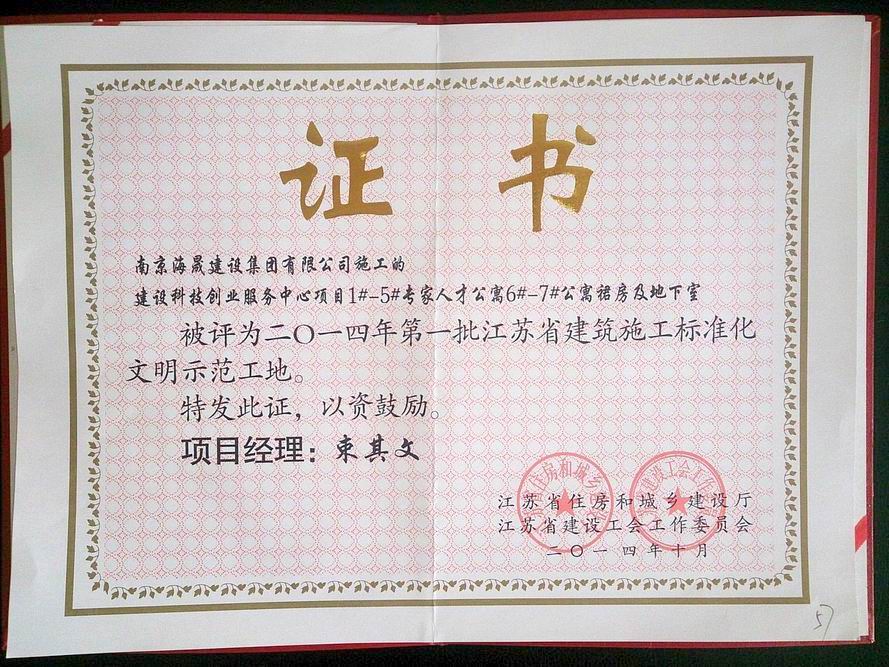 证书
南京海晟建设集团有限公司施工的
建设科技创业服务中心项目1#-5#专家人才公寓6#-7#公寓裙房及地下室
被评为二〇一四年第一批江苏省建筑施工标准化
文明示范工地。
特发此证，以资鼓励。
项目经理：束其文
江苏省住房和城乡建设厅
江苏省建设工会工作委员会
二〇一四年十月
57